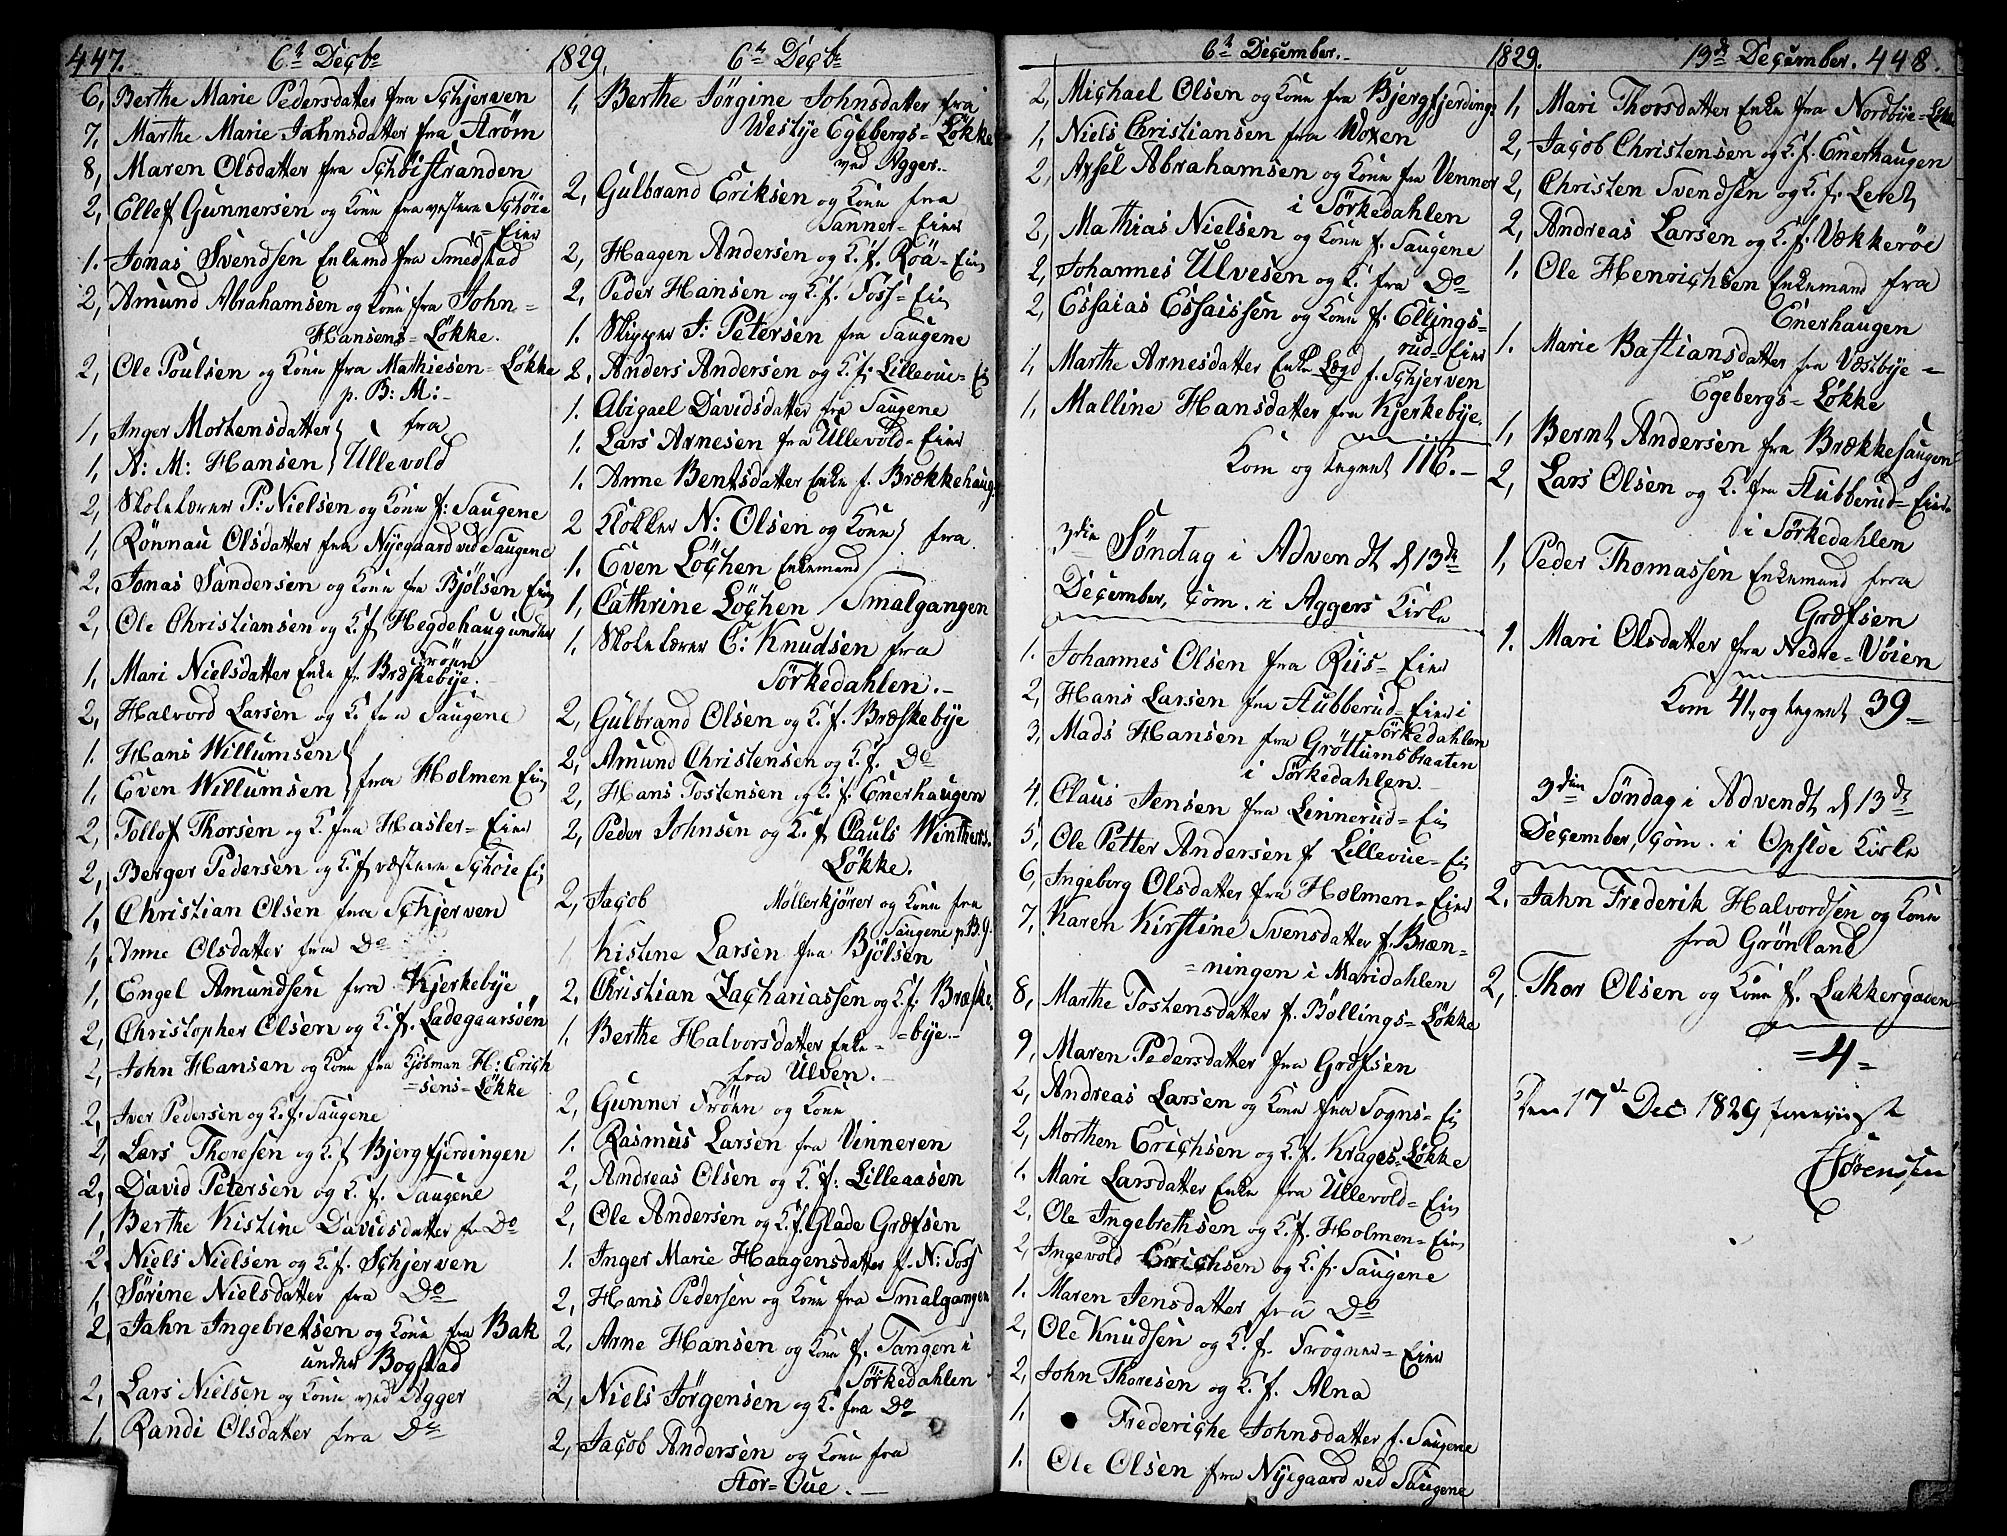 447. 6te Decbr 1829. 6te Decbr
6, Berthe Marie Pedersdatter fra Schjerven
7, Marthe Marie Jahnsdatter fra Strøm
8, Maren Olsdatter fra Schøistranden
2, Ellef Gunnersen og Kone fra vestere Schøie
=Eier
1. Jonas Svendsen Enkemd fra Smedstad
2, Amund Abrahamsen og Kone fra John=
Hansens=Løkke.
2, Ole Poulsen og Kone fra Mathiesen=Løkke
p. B: M:-
1, Inger Mortensdatter } fra
1, A: M: Hansen } Ullevold
2, Skolelærer P: Nielsen og Kone f: Saugene
1, Rönnau Olsdatter fra Nyegaard ved Saugene
2, Jonas Sandersen og Kone fra Bjølsen Eier
2, Ole Christiansen og K. f. Hegdehaug under
Frøen
1, Mari Nielsdatter Enke fr. Bræskebye.
2, Halvord Larsen og K. fra Saugene
1. Hans Willumsen }
1, Even Willumsen } fra Holmen Eier
2, Tollof Thorsen og K. fra Hasler=Eier
2, Berger Pedersen og K. f. vestere Schøie Ei
1, Christian Olsen fra Schjerven
1, Anne Olsdatter fra Do
1, Engel Amundsen fra Kjerkebye
2, Christopher Olsen og K. f. Ladegaarsøen
2, John Hansen og Kone fra Kjøbman H: Erich
=sens=Løkke
2, Iver Pedersen og K. f. Saugene
2, Lars Thoresen og K. f. Bjergfjerdingen
2, David Petersen og K. f. Saugene
1, Berthe Kistine Davidsdatter fr Do
2. Niels Nielsen og K. f. Schjerven
1, Sørine Nielsdatter fra Do
2, Jahn Ingebretsen og Kone fra Bak
under Bogstad
2, Lars Nielsen og Kone ved Agger
1, Randi Olsdatter fra Do
1, Berthe Jørgine Johnsdatter fra
Westbye Egebergs=Løkke
ved Agger..
2, Gulbrand Eriksen og Kone fra
Sanner=Eier
2, Haagen Andersen og K. f. Røa=Eier
2, Peder Hansen og K. f. Foss=Eier
1. Skipper J: Petersen fra Saugene
2, Anders Andersen og K. f. Lillevue=Ei
1. Abigael Davidsdatter fra Saugene
1. Lars Arnesen fra Ullevold=Eier
1. Anne Bentsdatter Enke f. Brækkehaug
2 Klokker N: Olsen og Kone } fra
1. Even Löchen Enkemand
1, Cathrine Löchen / Smalgangen
1. Skolelærer C: Knudsen fra
Sørkedahlen.-
2, Gulbrand Olsen og K. f. Bræskebye
2, Amund Christensen og K. f. Do
2, Hans Tostensen og K. f. Enerhaugen
2, Peder Johnsen og K. f. Clauls Winthers.
Løkke.
2, Jacob Møllerkjører og Kone fra
Saugene p. B. G.
1 Kistine Larsen fra Bjølsen
2. Christian Zachariassen og K. f. Bræske
1. Berthe Halvorsdatter Enke =bye.-
fra Ulven.
2, Gunner Frøen og Kone
1. Rasmus Larsen fra Vinneren
2, Andreas Olsen og K. f. Lilleaasen
2, Ole Andersen og K. f. Glade Græfsen
1. Inger Marie Haagensdatter f. N: Foss
2, Hans Pedersen og Kone fra Smalgangen
2, Arne Hansen og Kone f. Tangen i
Sørkedahlen
2, Niels Jørgensen og K. fra Do
2, Jacob Andersen og Kone fra
Stor=Oue.-
6te December.- 1829. 13de December. 448.
2, Michael Olsen og Kone fra Bjergfjerding.
1, Niels Christiansen fra Woxen
2, Axsel Abrahamsen og Kone fra Venner
i Sørkedahlen
2, Mathias Nielsen og Kone f. Saugene
2, Johannes Ulvesen og K. fra Do
2, Essaias Essaissen og Kone f. Ellings=
rud=Eier
1, Marthe Arnesdatter Enke Lægd f. Schjerven
1, Malline Hansdatter fra Kjerkebye.
Kom og tegnet 116.-
3die Søndag i Advendt d 13de
December, Com. i Aggers Kirke
1. Johannes Olsen fra Riis=Eier
2, Hans Larsen fra Stubberud=Eier i
Sørkedahlen
3, Mads Hansen fra Gröttumsbraaten
i Sørkedahlen.
4, Claus Jensen fra Linnerud=Ei
5, Ole Petter Andersen f Lillevue=Ei
6, Ingeborg Olsdatter fra Holmen=Eier
7, Karen Kirstine Svensdatter f. Bræn=
=ningen i Maridahlen
8, Marthe Tostensdatter f. Böllings=Løkke
9, Maren Pedersdatter fra Græfsen
2, Andreas Larsen og Kone fra Sogns=Ei
2, Morthen Erichsen og K. f. Krages=Løkke
1. Mari Larsdatter Enke fra Ullevold=Eier
2, Ole Ingebrethsen og K. f. Holmen=Eier
2, Ingevold Erichsen og K. f. Saugene
1. Maren Jensdatter fra Do
2, Ole Knudsen og K. f. Frogner=Eier
2, John Thoresen og K. f. Alna
1. Frederiche Johnsdatter f. Saugene
1. Ole Olsen fra Nyegaard ved Saugene
1, Mari Thorsdatter Enke fra Nordbye=Løkke
2, Jacob Christensen og K. f. Enerhaugen
2, Christen Svendsen og K. f. Leret
2, Andreas Larsen og K. f. Vækkerøe
1. Ole Henrichsen Enkemand fra
Enerhaugen
1. Marie Bastiansdatter fra Vestbye=
Egebergs=Løkke
1, Bernt Andersen fra Brækkehaugen
2, Lars Olsen og K. fra Stubberud=Eier
i Sørkedahlen
1, Peder Thomassen Enkemand fra
Græfsen
1. Mari Olsdatter fra Nedre=Vøien
Kom 41, og tegnet 39=
3die Søndag i Advendt d 13de
December, Com. i Opsloe Kirke
2. Jahn Frederik Halvordsen og Kone
fra Grønland
2, Thor Olsen og Kone f. Lakkergaven
=4=
Den 17de Dec 1829 foreviist
Sørenssen